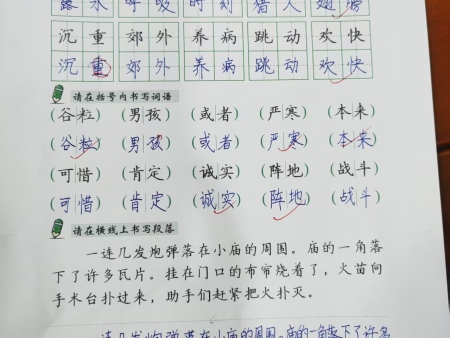 露水 呼吸 时刻 猎人 翅膀
沉重 郊外 养病 跳动 欢快
沉重 郊外 养病 跳动 欢快
请在括号内书写词语
(谷粒) (男孩) (或者) (严寒) (本来)
(谷粒) (男孩) (或者) (严寒) (本来)
(可惜) (肯定) (诚实) (阵地) (战斗)
(可惜) (肯定) (诚实) (阵地) (战斗)
请在横线上书写段落
一连几发炮弹落在小庙的周围。庙的一角落
下了许多瓦片。挂在门口的布帘烧着了，火苗向
手术台扑过来，助手们赶紧把火扑灭。
一连几发炮弹落在小庙的周围。庙的一角落下了许多